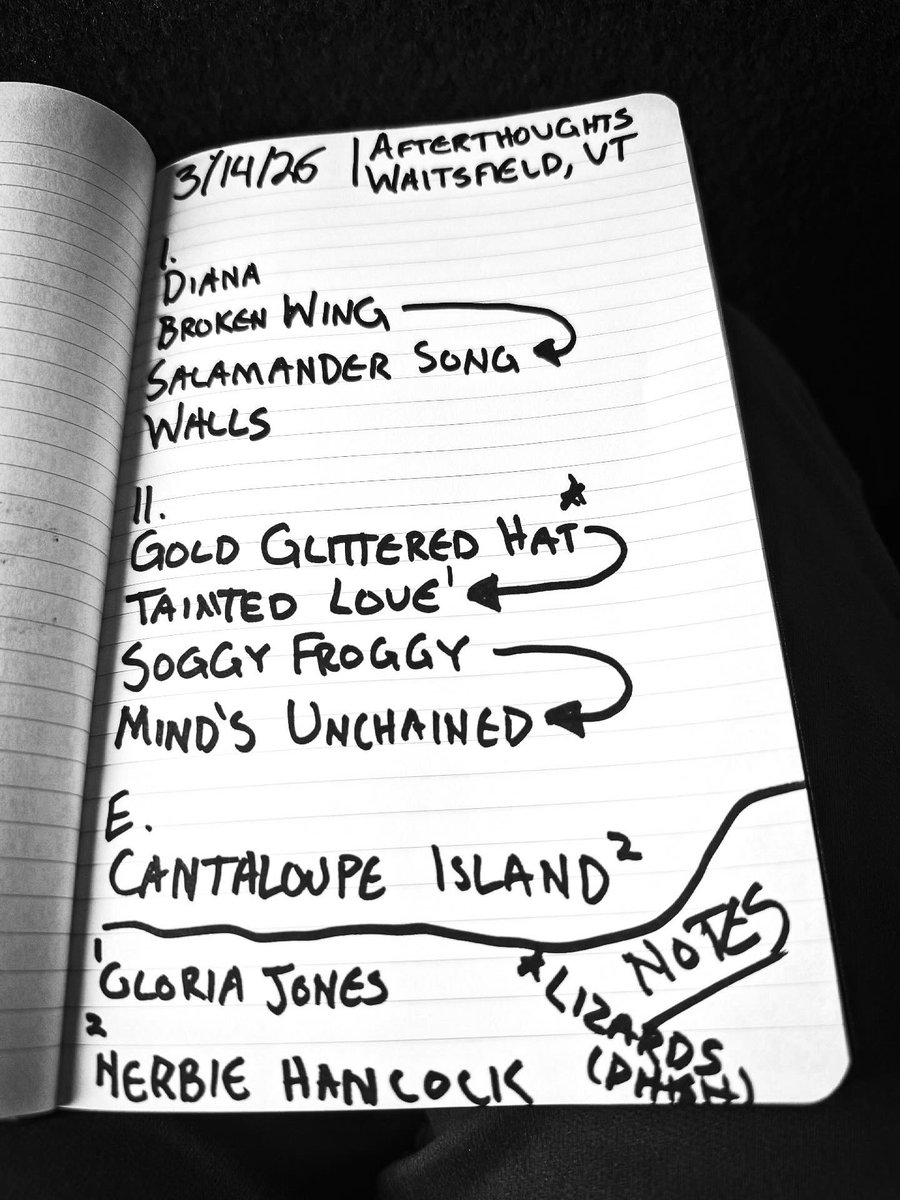 3/14/26 | AFTERTHOUGHTS
WAITSFIELD, VT
I.
DIANA
BROKEN WING
SALAMANDER SONG
WALLS
II.
GOLD GLITTERED HAT*
TAINTED LOVE¹
SOGGY FROGGY
MIND'S UNCHAINED
E.
CANTALOUPE ISLAND²
NOTES
¹GLORIA JONES
²HERBIE HANCOCK
*LIZARDS
(PHISH)